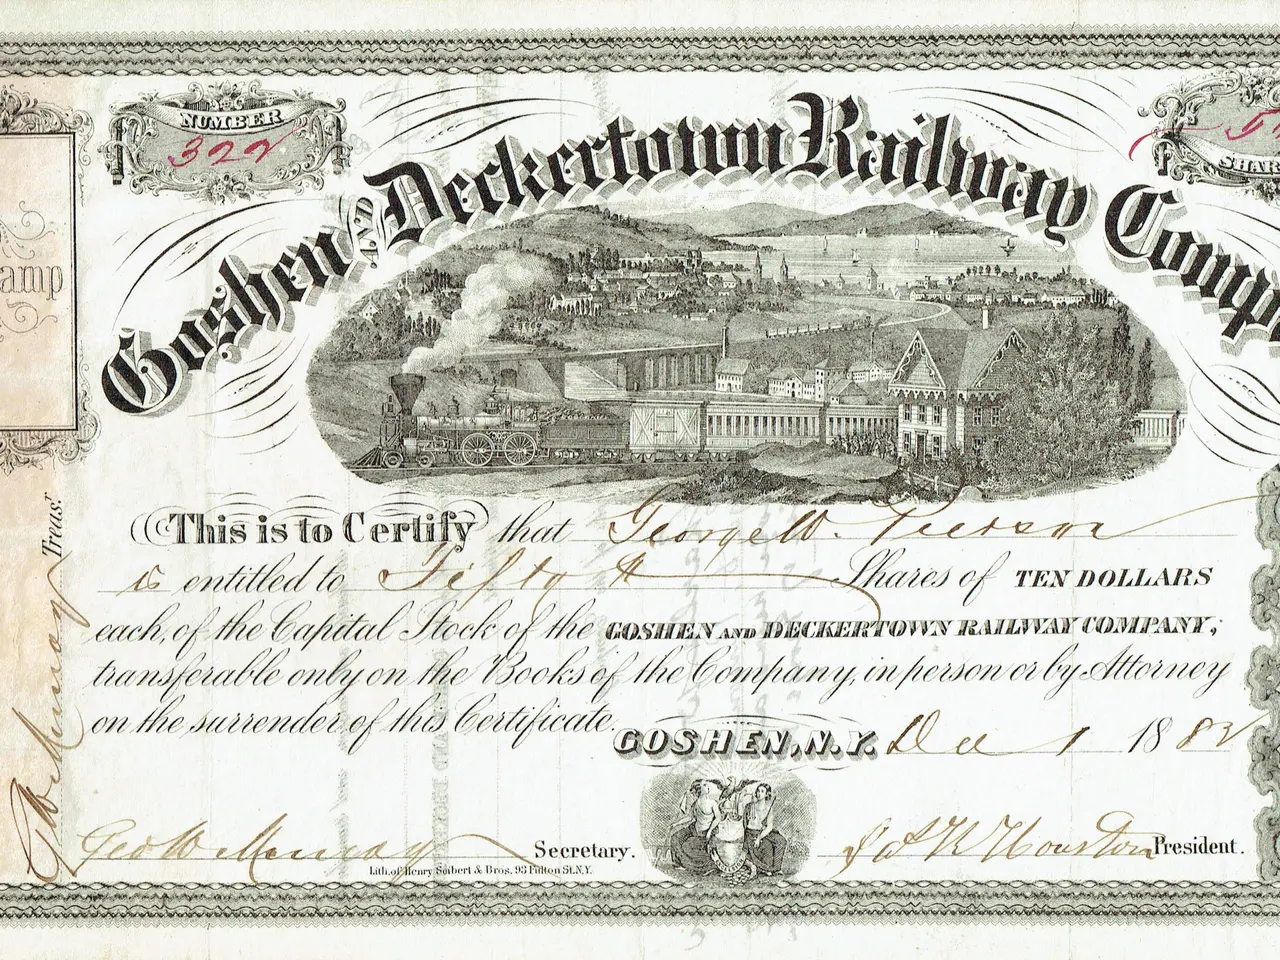 NUMBER
322
SHAR
amp
Goshen AND Deckertown Railway Comp
This is to Certify that George W. Pierson
is entitled to Fifty Shares of TEN DOLLARS
each, of the Capital Stock of the GOSHEN AND DECKERTOWN RAILWAY COMPANY,
transferable only on the Books of the Company, in person or by Attorney
on the surrender of this Certificate.
GOSHEN, N.Y. Dec 1 1882
Geo W. Murray Secretary.
Houston President.
Lith. of Henry Seibert & Bros. 93 Fulton St. N.Y.
Geo W. Murray Treas.r